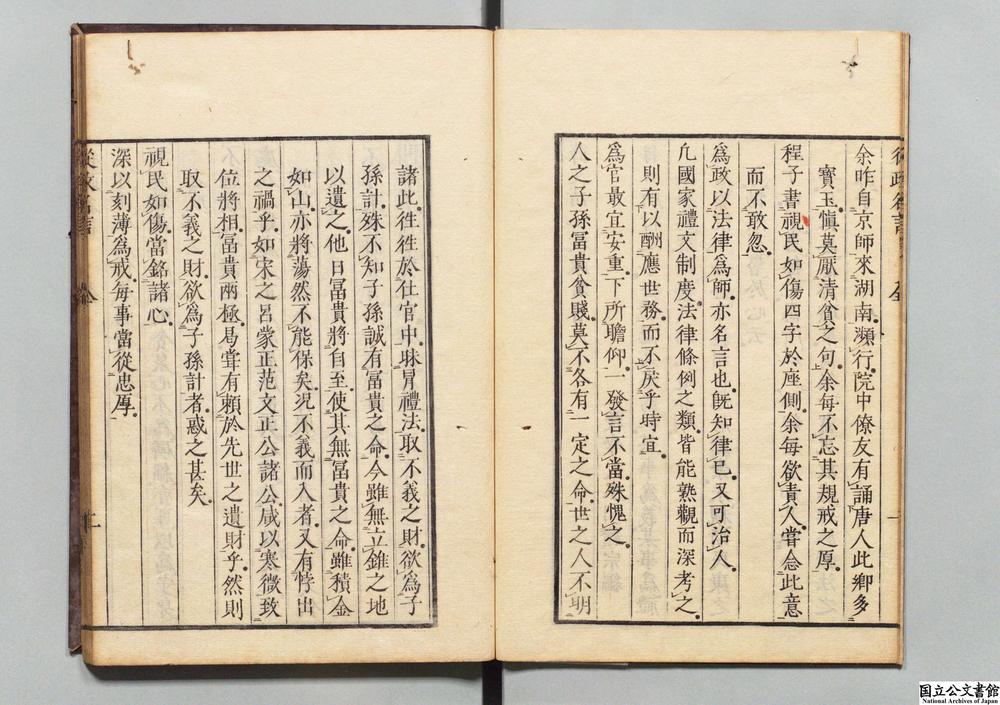 余昨自京師來湖南瀕行院中僚友有誦唐人此鄉多
寶玉愼莫厭清貧之句余每不忘其規戒之厚
程子書視民如傷四字於座側余每欲責人嘗念此意
而不敢忽
爲政以法律爲師亦名言也旣知律已又可治人
凢國家禮文制度法律條例之類皆能熟觀而深考之
則有以酬應世務而不戾乎時宜
爲官最宜安重下所瞻仰一發言不當殊愧之
人之子孫冨貴貧賤莫不各有一定之命世之人不明
諸此徃徃於仕官中昧冐禮法取不義之財欲爲子
孫計殊不知子孫誠有冨貴之命今雖無立錐之地
以遺之他日冨貴將自至使其無冨貴之命雖積金
如山亦將蕩然不能保矣况不義而入者又有悖出
之禍乎如宋之呂蒙正范文正公諸公咸以寒微致
位將相冨貴兩極曷甞有賴於先世之遺財乎然則
取不義之財欲爲子孫計者惑之甚矣
視民如傷當銘諸心
深以刻薄爲戒每事當從忠厚
國立公文書館
National Archives of Japan